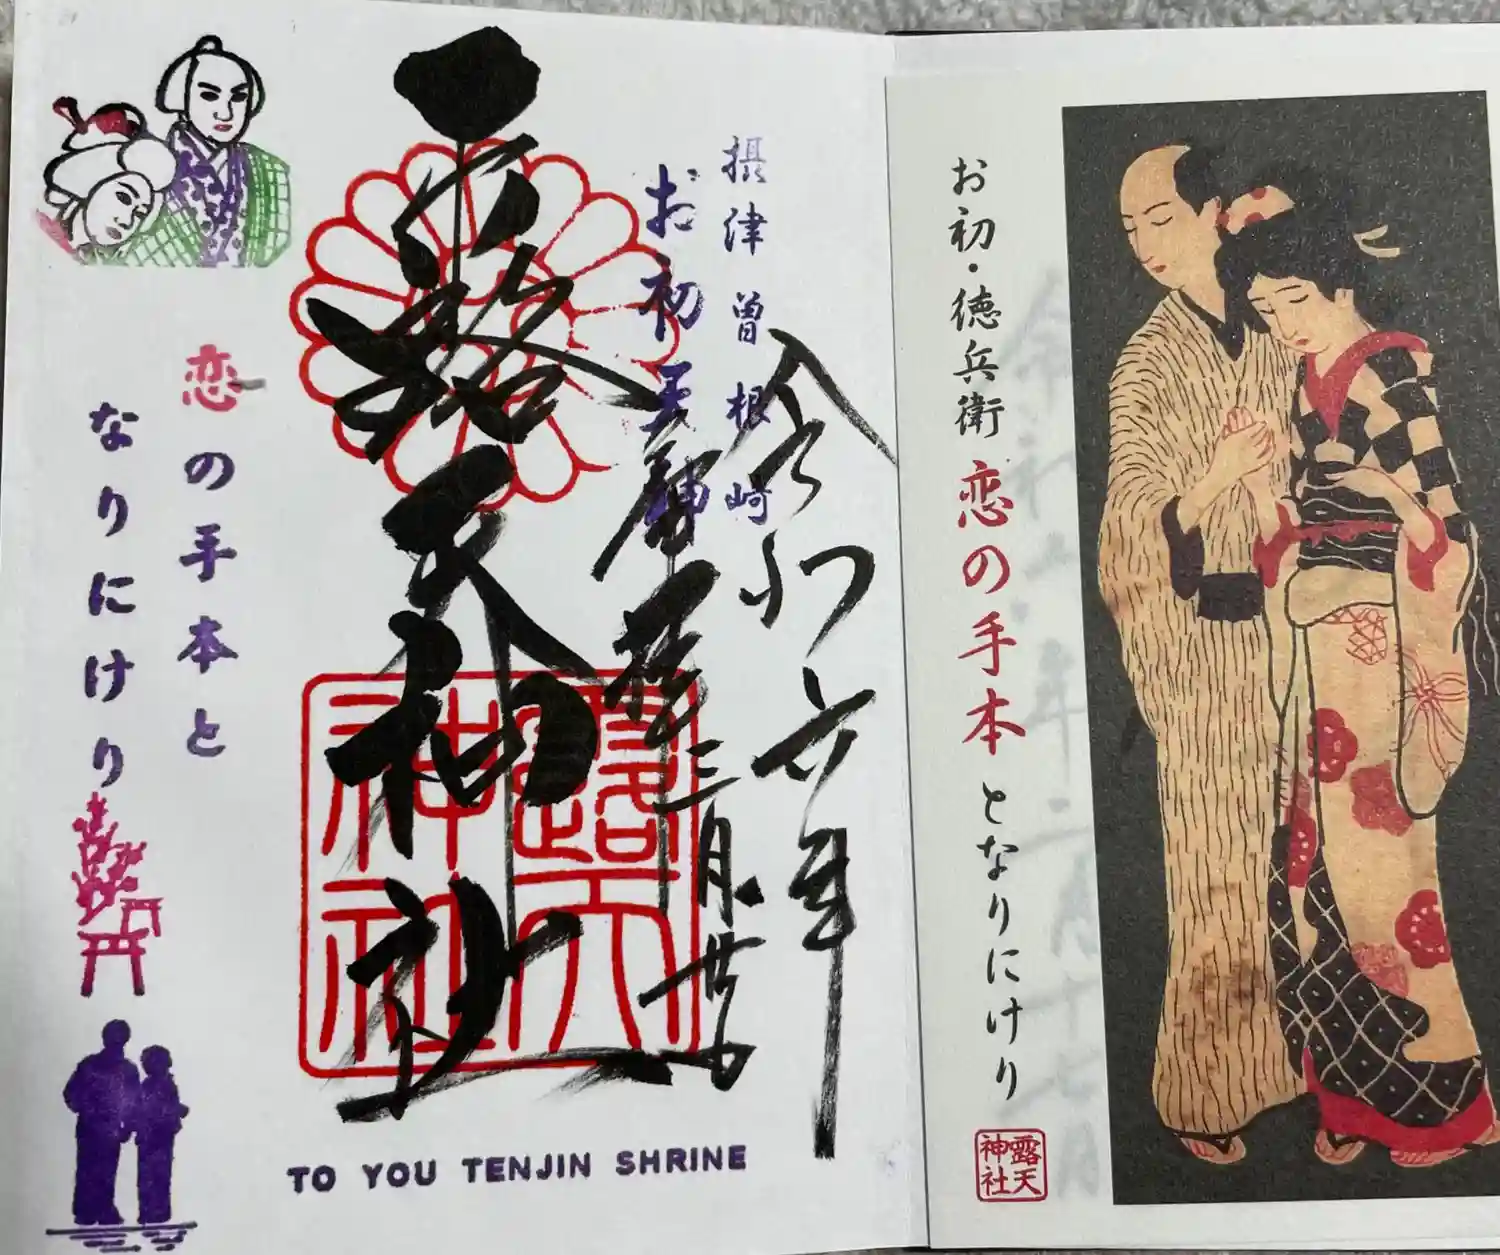 お初・徳兵衛 恋の手本 となりにけり
露天
神社
令和六年
摂津曽根崎
お初天神
三月廿日
露天神社
露天
神社
恋の手本と
なりにけり
TO YOU TENJIN SHRINE